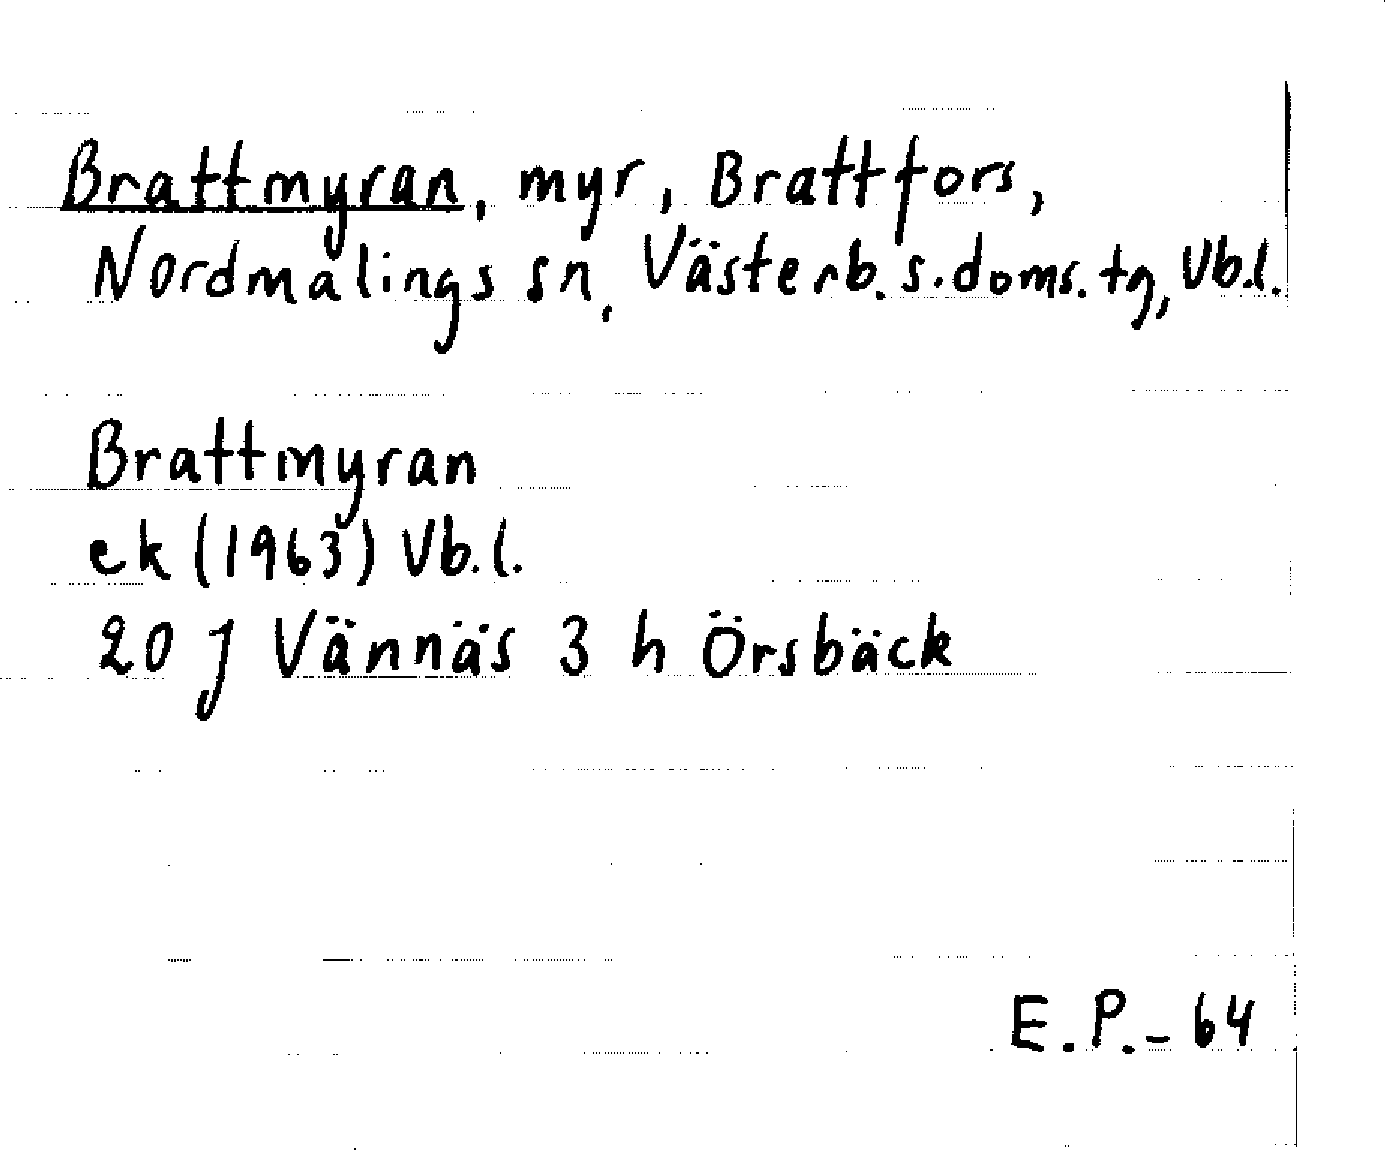 Brattmyran, myr, Brattfors,
Nordmalings sn, Västerb. s. doms. tg, Vb.l.
Brattmyran
ek (1963) Vb.l.
20 J Vännäs 3 h Örsbäck
E.P.-64